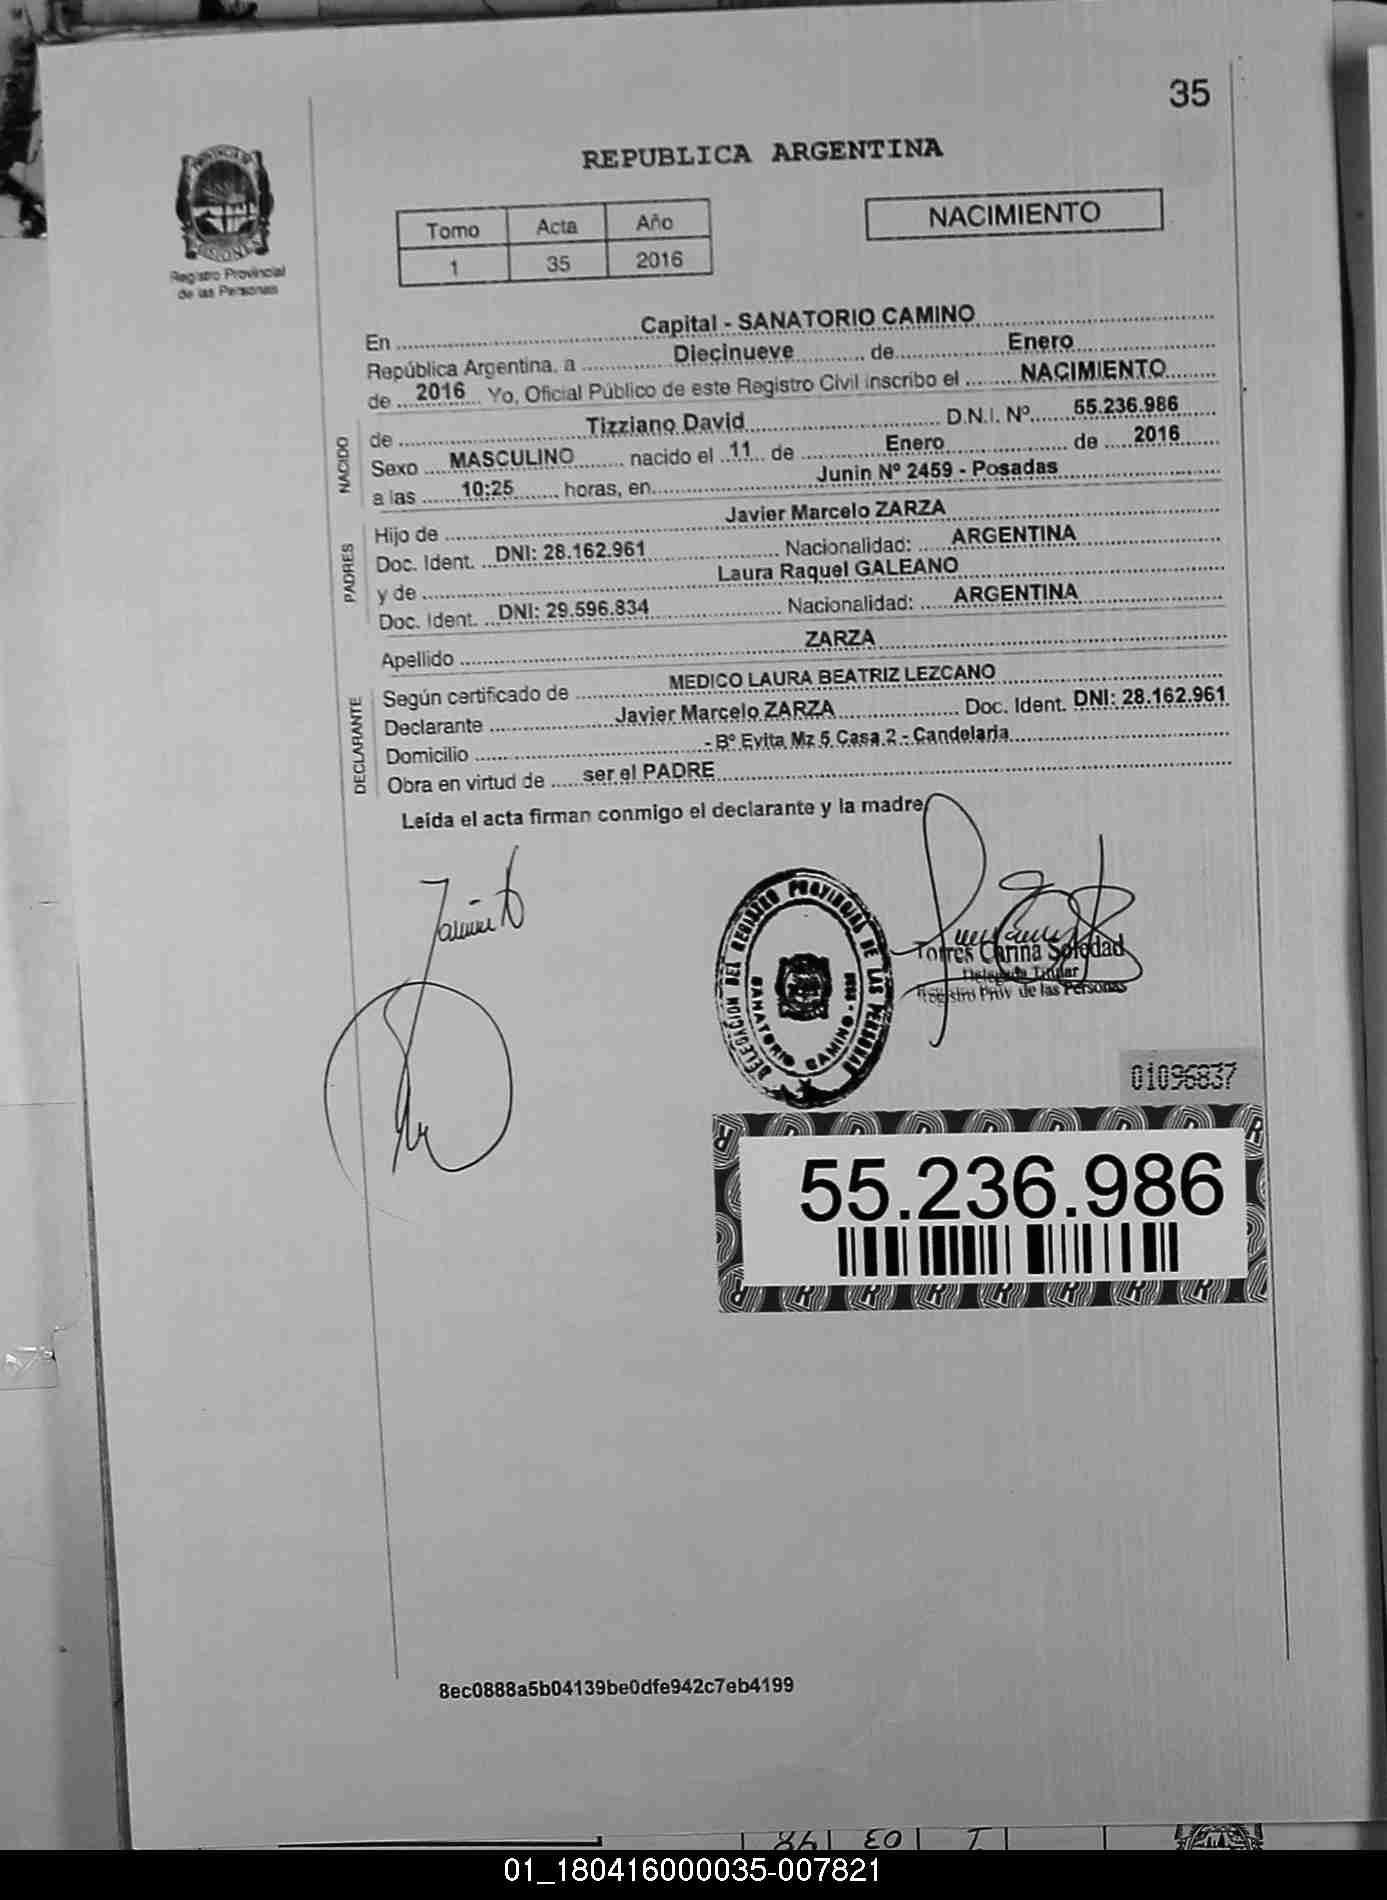 35
PROVINCIA DE
MISIONES
Registro Provincial
de las Personas
REPUBLICA ARGENTINA
Tomo Acta Año
1 35 2016
NACIMIENTO
En ........ Capital - SANATORIO CAMINO ........
República Argentina, a ........ Diecinueve ........ de ........ Enero ........
de ... 2016 ... Yo, Oficial Público de este Registro Civil inscribo el ........ NACIMIENTO ........
NACIDO
de ........ Tizziano David ........ D.N.I. Nº ...... 55.236.986 ......
Sexo .... MASCULINO ........ nacido el .. 11 ... de ........ Enero ........ de .... 2016 ......
a las ...... 10:25 ...... horas, en ........ Junin Nº 2459 - Posadas ........
PADRES
Hijo de ........ Javier Marcelo ZARZA ........
Doc. Ident. ... DNI: 28.162.961 ........ Nacionalidad: ..... ARGENTINA ........
y de ........ Laura Raquel GALEANO ........
Doc. Ident. ... DNI: 29.596.834 ........ Nacionalidad: ..... ARGENTINA ........
Apellido ........ ZARZA ........
DECLARANTE
Según certificado de ........ MEDICO LAURA BEATRIZ LEZCANO ........
Declarante ........ Javier Marcelo ZARZA ........ Doc. Ident. DNI: 28.162.961
Domicilio ........ - Bº Evita Mz 5 Casa 2 - Candelaria ........
Obra en virtud de ..... ser el PADRE ........
Leída el acta firman conmigo el declarante y la madre
DELEGACION DEL REGISTRO PROVINCIAL DE LAS PERSONAS
SANATORIO CAMINO
Torres Carina Soledad
Delegada Titular
Registro Prov de las Personas
01096837
55.236.986
8ec0888a5b04139be0dfe942c7eb4199
01_180416000035-007821